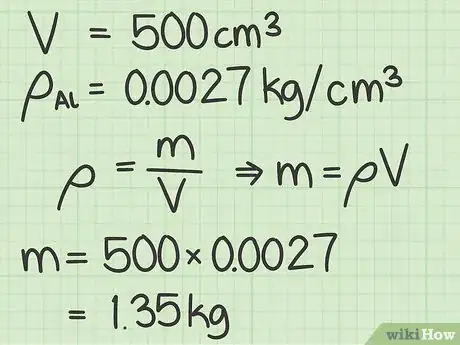 V = 500 cm³
ρAL = 0.0027 kg/cm³
ρ = m/V ⇒ m = ρV
m = 500 × 0.0027
= 1.35 kg
wikiHow